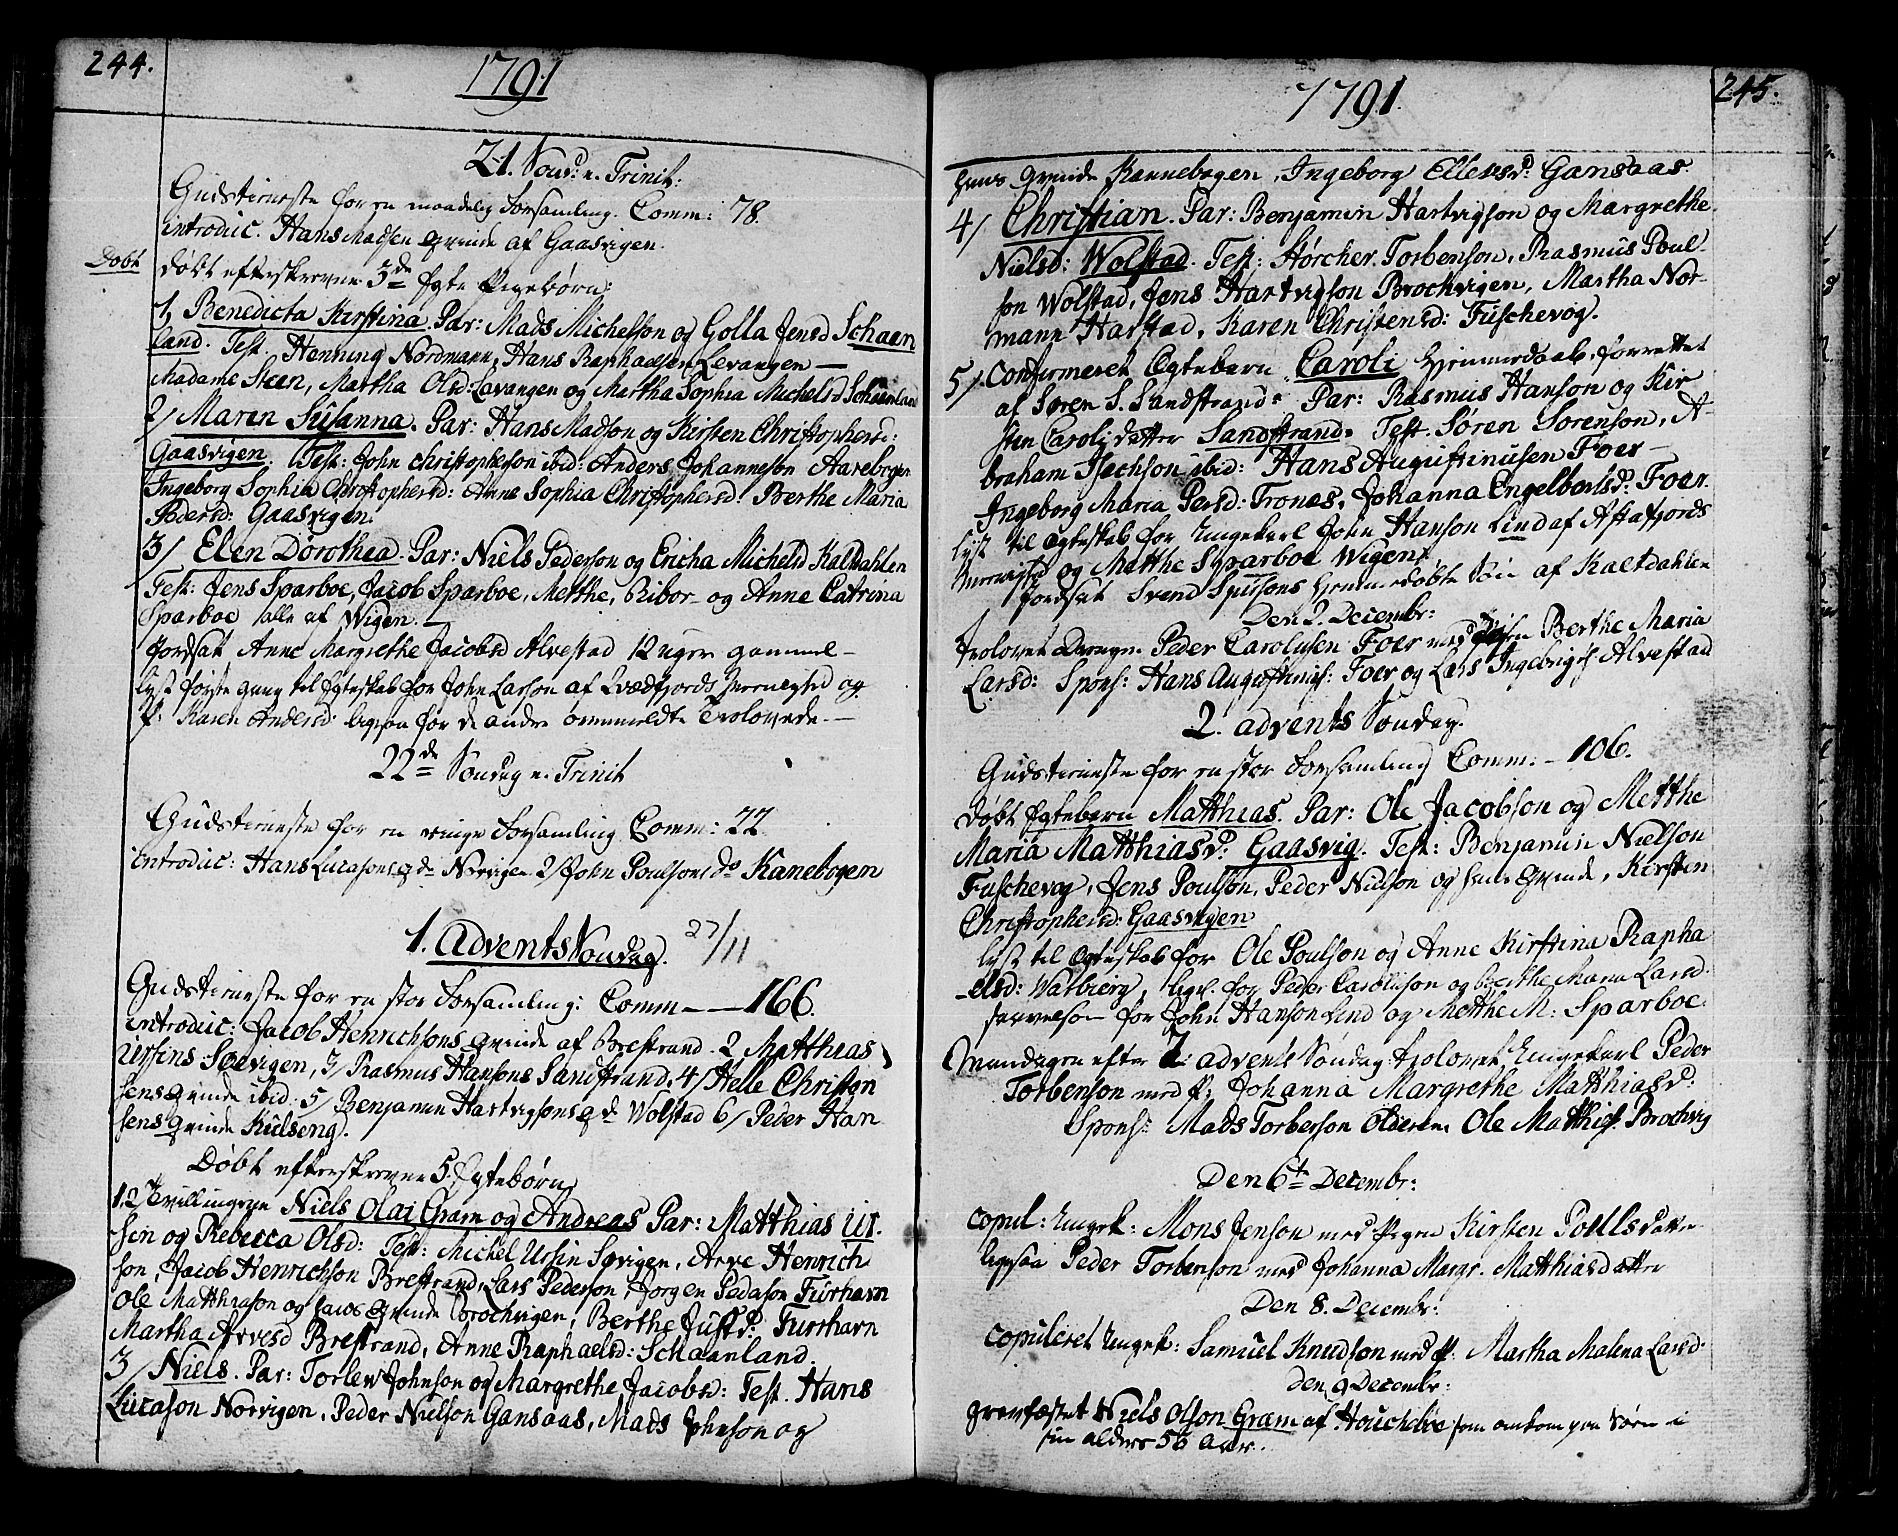 244.
1791
21. Sønd: e. Trinit:
Gudstieneste for en maadelig Forsamling. Comm: 78.
introduc. Hans Madsen Qvinde af Gaasvigen.
Døbt
døbt efterskrevne 3de Ægte Pigebørn:
1, Benedicta Kirstina. Par: Mads Michelson og Golla Jensd Schaan
land. Test. Henning Nordmann, Hans Raphaelsen Levangen —
Madame Steen, Martha Olsd Lavangen og Martha Sophia Michelsd Schaanland
2/ Maren Susanna. Par: Hans Madson og Kirsten Christophersd:
Gaasvigen. Test: John Christopherson ibid: Anders Johanneson Aarebogen
Ingeborg Sophia Christophersd: Anne Sophia Christophersd: Berthe Maria
Pedersd: Gaasvigen.
3/ Elen Dorothea. Par: Niels Pederson og Ericha Michelsd Kaldahlen
Test: Jens Sparboe, Jacob Sparboe, Metthe, Ribor- og Anne Catrina
Sparboe alle af Wigen.
Jordsat Anne Margrethe Jacobsd Alvestad 12 uger gammel —
lyst første gang til Ægteskab for John Larson af Qvædfjords Menighed og
P: Karen Andersd: ligesaa for de andre ommeldte Trolovede. —
22de Søndag e. Trinit
Gudstieneste for en ringe Forsamling Comm: 22.
introduc: Hans Lucasons qde Norvigen 2/ John Poulsons do Kanebogen
1. Advents Søndag. 27/11
Gudstieneste for en stor Forsamling: Comm — 166.
introduc: Jacob Henrichsons Qvinde af Brestrand. 2 Matthias
Ursins Sørvigen, 3/ Rasmus Hansons Sandstrand, 4/ Helle Christen
sens Qvinde ibid: 5/ Benjamin Hartvigsons qd Wolstad 6/ Peder Han
sens Qvinde Kulseng.
Døbt efterskrevne 5. Ægtebørn
1. 2 Tvillingerne Niels Olai Gram og Andreas Par: Matthias Ur.
sin og Rebecca Olsd: Test: Michel Ursin Sørvigen, Arve Henrich
son, Jacob Henrichson Brestrand, Lars Pederson, Jorgen Pedason Furrhavn
Ole Matthiason og hans Qvinde Brochvigen, Berthe Justsd: Furrhavn
Martha Arvesd Brestrand, Anne Raphaelsd: Schaanland.
3/ Niels. Par: Torlev Johnson og Margrethe Jacobsd: Test. Hans
Lucason Norvigen, Peder Nielson Gansaas, Mads Johnson og
1791.
245.
hans Qvinde Kannebogen, Ingeborg Ellensd: Gansaas.
4/ Christian. Par: Benjamin Hartvigson og Margrethe
Nielsd: Wolstad. Test: Størcher Torbenson, Rasmus Poul
son Wolstad, Jens Hartvigson Brochvigen, Martha Nor-
mann Harstad, Karen Christensd: Fuschevog.
5/ Confirmeret Ægtebarn Caroli Hjemmedaab, forrettet
af Søren S. Sandstrand. Par: Rasmus Hanson og Kir
sten Carolidatter Sandstrand. Test. Søren Sorenson, A-
braham Isachson ibid: Hans Augustinusen Foer —
Ingeborg Maria Persd: Tronas, Johanna Engelbertsd: Foer.
lyst til Egteskab for Ungekarl John Hanson Lind af Astafjords
Menighed og Metthe Sparboe Wigen.
Jordsat Svend Siursons hjemmedøbte Søn af Kaltdahlen
Den 2. Decembr:
Trolovet Drengen Peder Carolusen Foer med Pigen Berthe Maria
Larsd: Spons: Hans Augustinus: Foer og Lars Ingebrigts: Alvestad
2. Advents Søndag.
Gudstieneste for en stor Forsamling Comm: — 106.
døbt Ægtebarn Matthias. Par: Ole Jacobson og Metthe
Maria Matthiasd: Gaasvig. Test: Benjamin Nielson
Fuschevog, Jens Poulson, Peder Nielson og hans Qvinde, Kirsten
Christophersd: Gaasvigen
lyst til Egteskab for Ole Poulson og Anne Kirstina Rapha
-elsd: Watbierg, ligel. for Peder Carolison og Berthe Maria Larsd.
for John Hanson Lind og Metthe M: Sparboe.
Mandagen efter 2. Advents Søndag trolovet Ungekarl Peder
Torbenson med P: Johanna Margrethe Matthiasd:
Spons: Mads Torberson Olderen. Ole Matthis: Brochvig
Den 6te Decembr:
copul: Ungek: Mons Jenson med Pigen Kirsten Poulsdatter
ligesaa Peder Torbenson med Johanna Margr. Matthiasdatter
Den 8. Decembr:
copuleret Ungek: Samuel Knudson med P: Martha Malena Larsd.
Den 9 Decembr:
gravfæstet Niels Olson Gram af som omkom paa Søen i
sin alders 56 Aar.